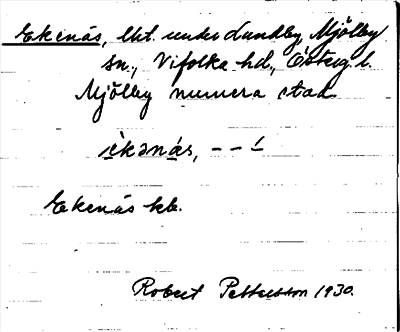 Ekenäs, lht. under Lundby, Mjölby
sn., Vifolka hd., Östergl. l.
Mjölby numera stad
èkənás, – – ́
Ekenäs kb.
Robert Pettersson 1930.